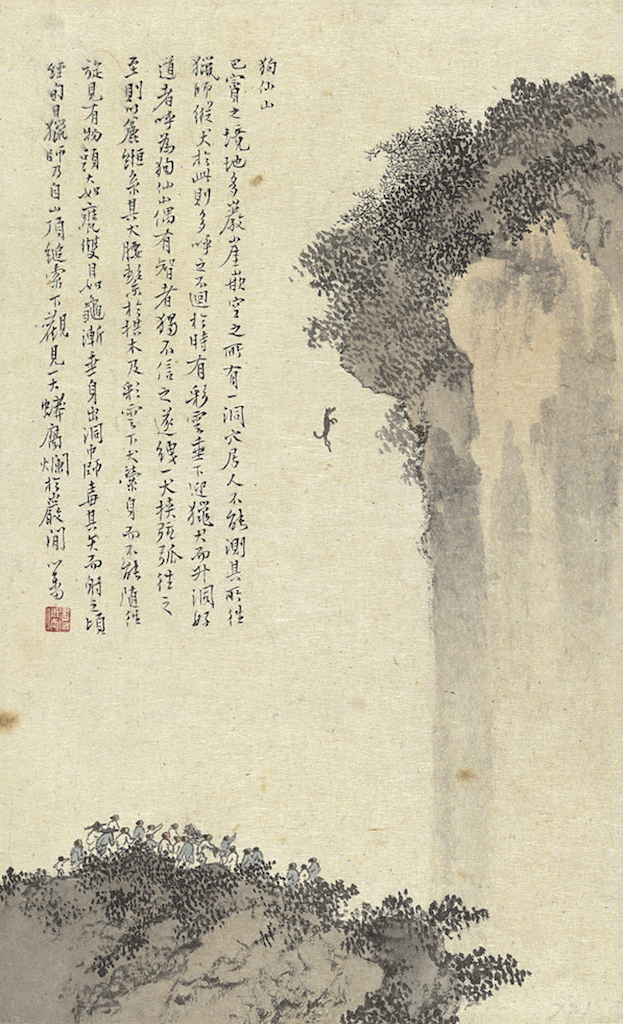 狗仙山
巴賨之境地多巖崖嵌空之所有一洞穴居人不能測其所往
獵師縱犬於此則多呼之不回於時有彩雲垂下迎獵犬而升洞好
道者呼為狗仙山偶有智者獨不信之遂絏一犬挾弦弧往之
至則以麄絙系其犬腰繫於拱木及彩雲下犬縈身而不能隨往
旋見有物頭大如甕雙目如龜漸垂身出洞中師毒其矢而射之頃
經旬日獵師乃自山頂縋索下觀見一大蟒腐爛於巖間 心畬